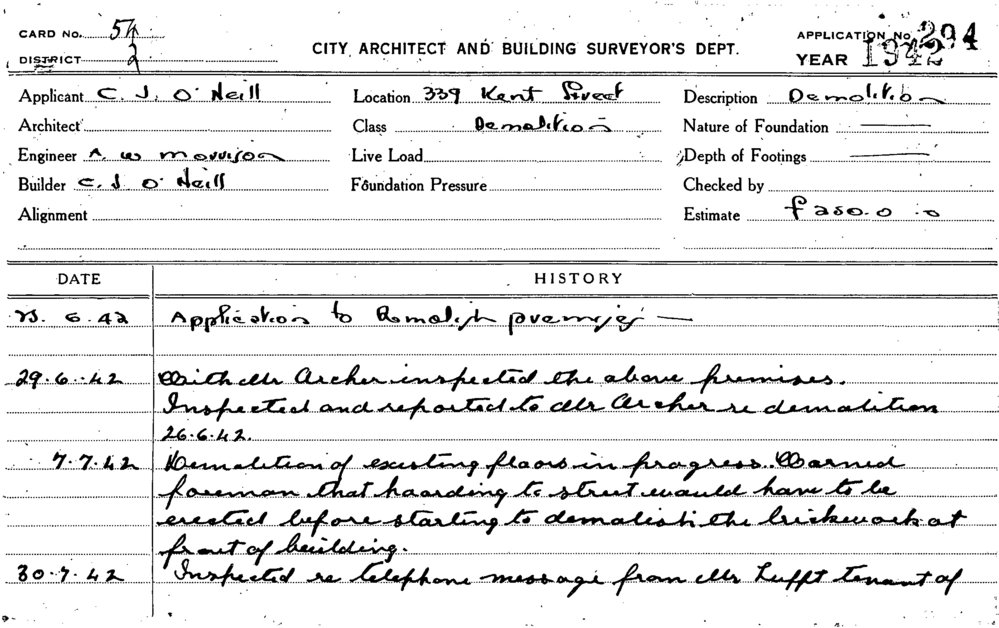 CARD No. 54
DISTRICT 2
CITY ARCHITECT AND BUILDING SURVEYOR'S DEPT.
APPLICATION No. 294
YEAR 1942
Applicant C. J. O'Neill
Location 339 Kent Street
Description Demolition
Architect
Class Demolition
Nature of Foundation —
Engineer A W Morrison
Live Load
Depth of Footings —
Builder C. J O'Neill
Foundation Pressure
Checked by
Alignment
Estimate £250.0.0
DATE
HISTORY
23. 6. 42 Application to Demolish premises —
29.6.42 With Mr Archer inspected the above premises.
Inspected and reported to Mr Archer re demolition
26.6.42.
7.7.42 Demolition of existing floors in progress. Warned
foreman that hoarding to street would have to be
erected before starting to demolish the brickwork at
front of building.
30.7.42 Inspected re telephone message from Mr Lufft tenant of